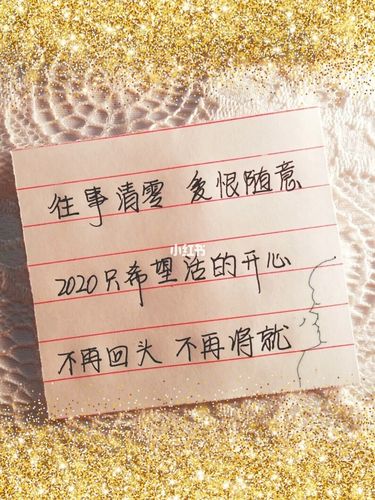 往事清零 爱恨随意
小红书
2020只希望活的开心
不再回头 不再将就